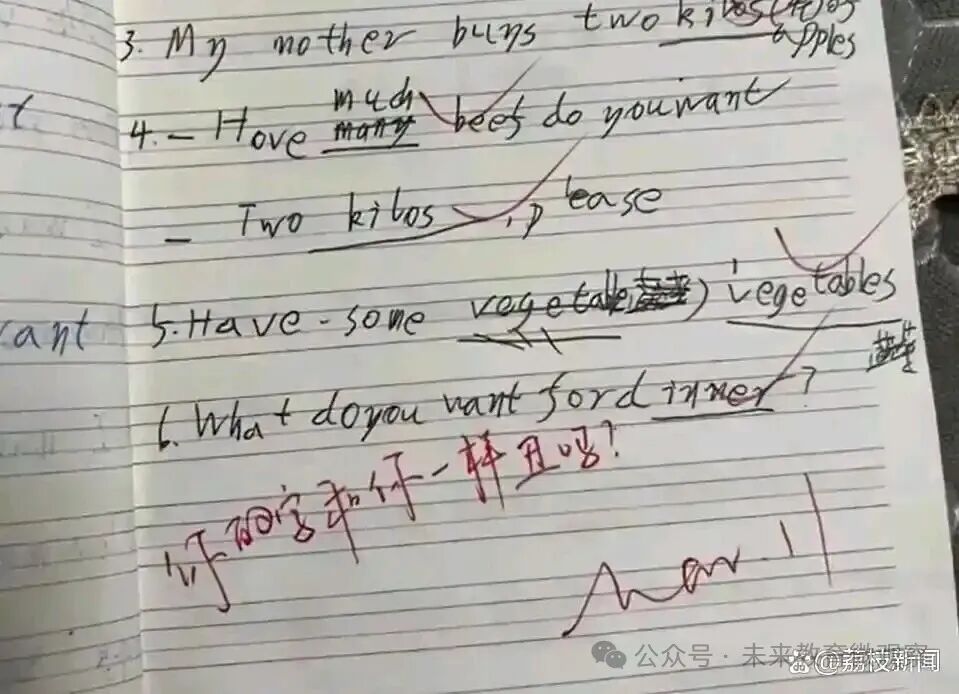 3. My mother buys two kilos of
apples
much
4. — How many beef do you want
— Two kilos, please
5. Have some vegetable) vegetables
蔬菜
6. What do you want for dinner?
你的字和你一样丑吗?
ant
公众号 · 未来教育微观察
@荔枝新闻